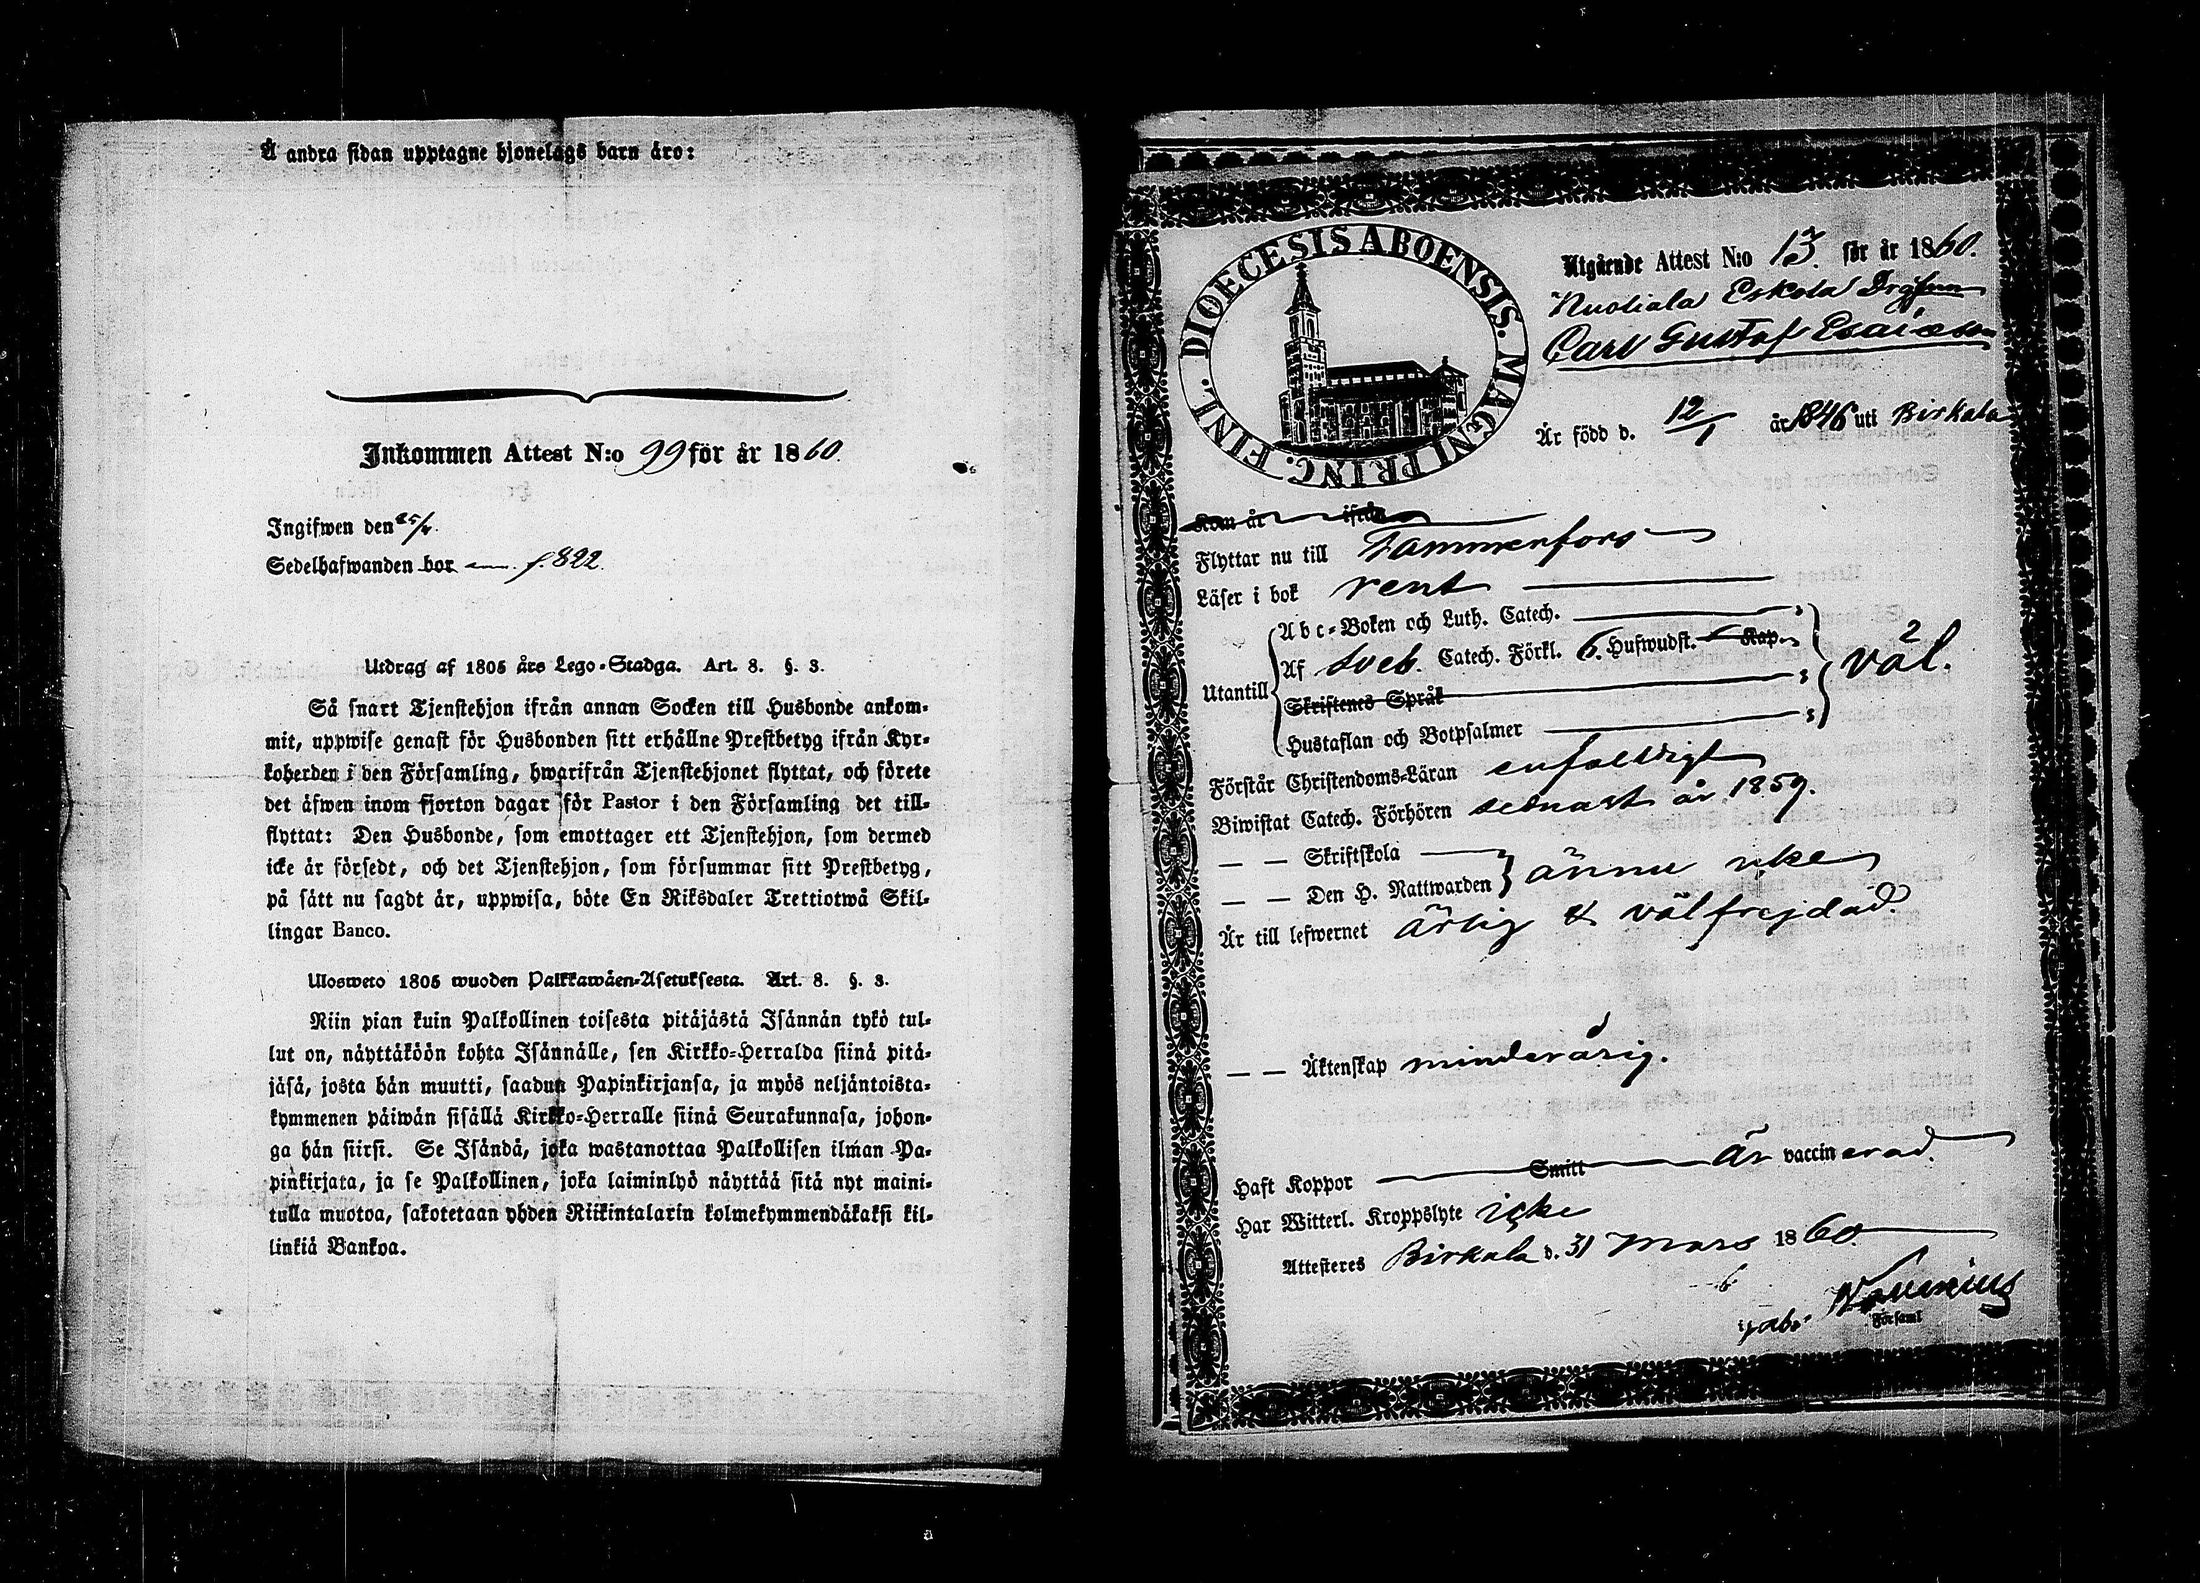 Å andra sidan upptagne hjonelags barn äro:
Inkommen Attest N:o 99 för år 1860.
Ingifwen den 25/4.
Sedelhafwanden bor f. 822.
Utdrag af 1805 års Lego-Stadga. Art. 8. §. 3.
Så snart Tjenstehjon ifrån annan Socken till Husbonde ankom-
mit, uppwise genast för Husbonden sitt erhållne Prestbetyg ifrån Kyr-
koherden i den Församling, hwarifrån Tjenstehjonet flyttat, och förete
det äfwen inom fjorton dagar för Pastor i den Församling det till-
flyttat: Den Husbonde, som emottager ett Tjenstehjon, som dermed
icke är försedt, och det Tjenstehjon, som försummar sitt Prestbetyg,
på sätt nu sagdt är, uppwisa, böte En Riksdaler Trettiotwå Skil-
lingar Banco.
Ulosweto 1805 wuoden Palkkawäen-Asetuksesta. Art. 8. §. 3.
Niin pian kuin Palkollinen toisesta pitäjästä Isännän tykö tul-
lut on, näyttäköön kohta Isännälle, sen Kirkko-Herralda siinä pitä-
jäsä, josta hän muutti, saadun Papinkirjansa, ja myös neljäntoista-
kymmenen päiwän sisällä Kirkko-Herralle siinä Seurakunnasa, johon-
ga hän siirsi. Se Isändä, joka wastanottaa Palkollisen ilman Pa-
pinkirjata, ja se Palkollinen, joka laiminlyö näyttää sitä nyt maini-
tulla muotoa, sakotetaan yhden Riikintalarin kolmekymmendäkaksi kil-
linkiä Bankoa.
DIOECESIS ABOENSIS. MAGNI PRINC. FINL.
Utgående Attest N:o 13. för år 1860.
Nuoliala Eskola
Carl Gustaf Esaiæson
Är född d. 12/1 år 1846 uti Birkala
Kom år ifrån
Flyttar nu till Tammerfors
Läser i bok rent
Utantill
Abc-Boken och Luth. Catech.
Af Sveb. Catech. Förkl. 6. Hufwudst. Kap.
Skriftenes Språk
Hustaflan och Botpsalmer
väl.
Förstår Christendoms-Läran enfaldigt
Biwistat Catech. Förhören sednast år 1859.
— — Skriftskola
— — Den H. Nattwarden
ännu icke
Är till lefwernet ärlig & välfrejdad.
— — Äktenskap minderårig.
Haft Koppor Smitt Är vaccinerad.
Har Witterl. Kroppslyte icke
Attesteres Birkala d. 31 Mars 1860.
Församl